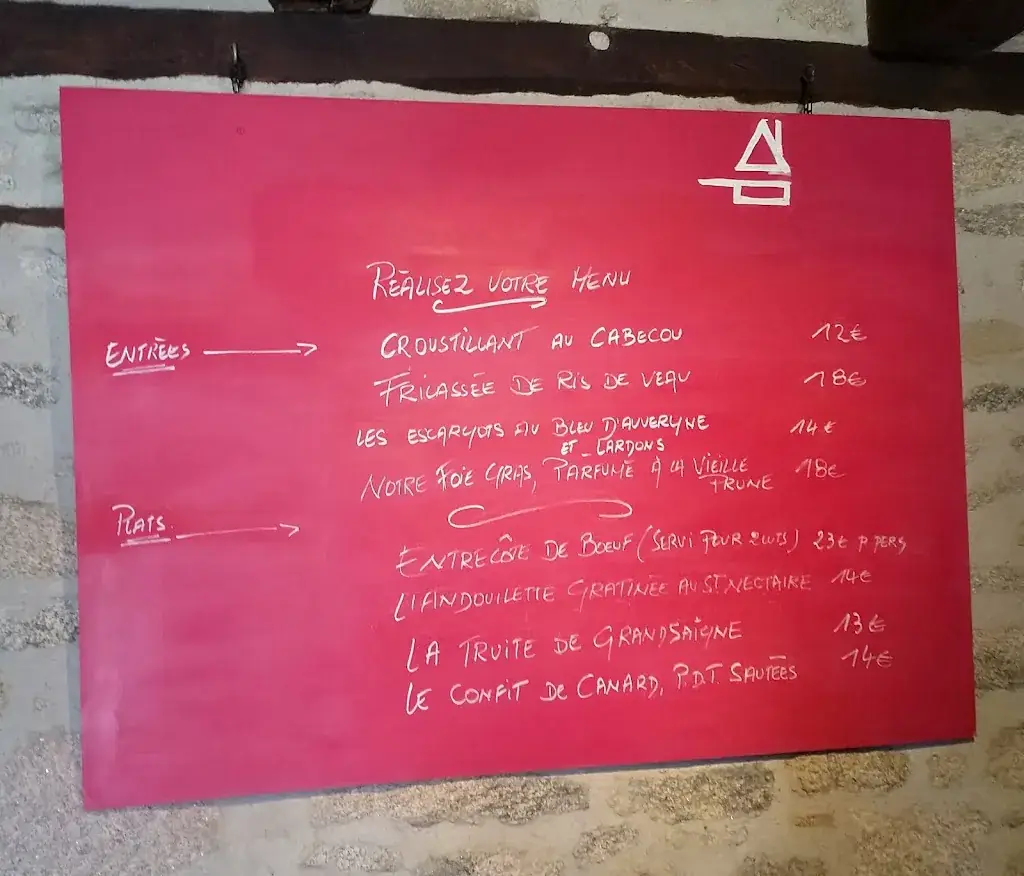 RÉALISEZ VOTRE MENU
ENTRÉES
CROUSTILLANT AU CABECOU 12€
FRICASSÉE DE RIS DE VEAU 18€
LES ESCARGOTS AU BLEU D'AUVERGNE 14€
ET LARDONS
NOTRE FOIE GRAS, PARFUMÉ À LA VIEILLE 18€
PRUNE
PLATS.
ENTRECÔTE DE BOEUF (SERVI POUR 2 CVTS) 23€ P PERS
L'ANDOUILETTE GRATINÉE AU ST NECTAIRE 14€
LA TRUITE DE GRANDSAIGNE 13€
LE CONFIT DE CANARD, P.D.T. SAUTÉES 14€